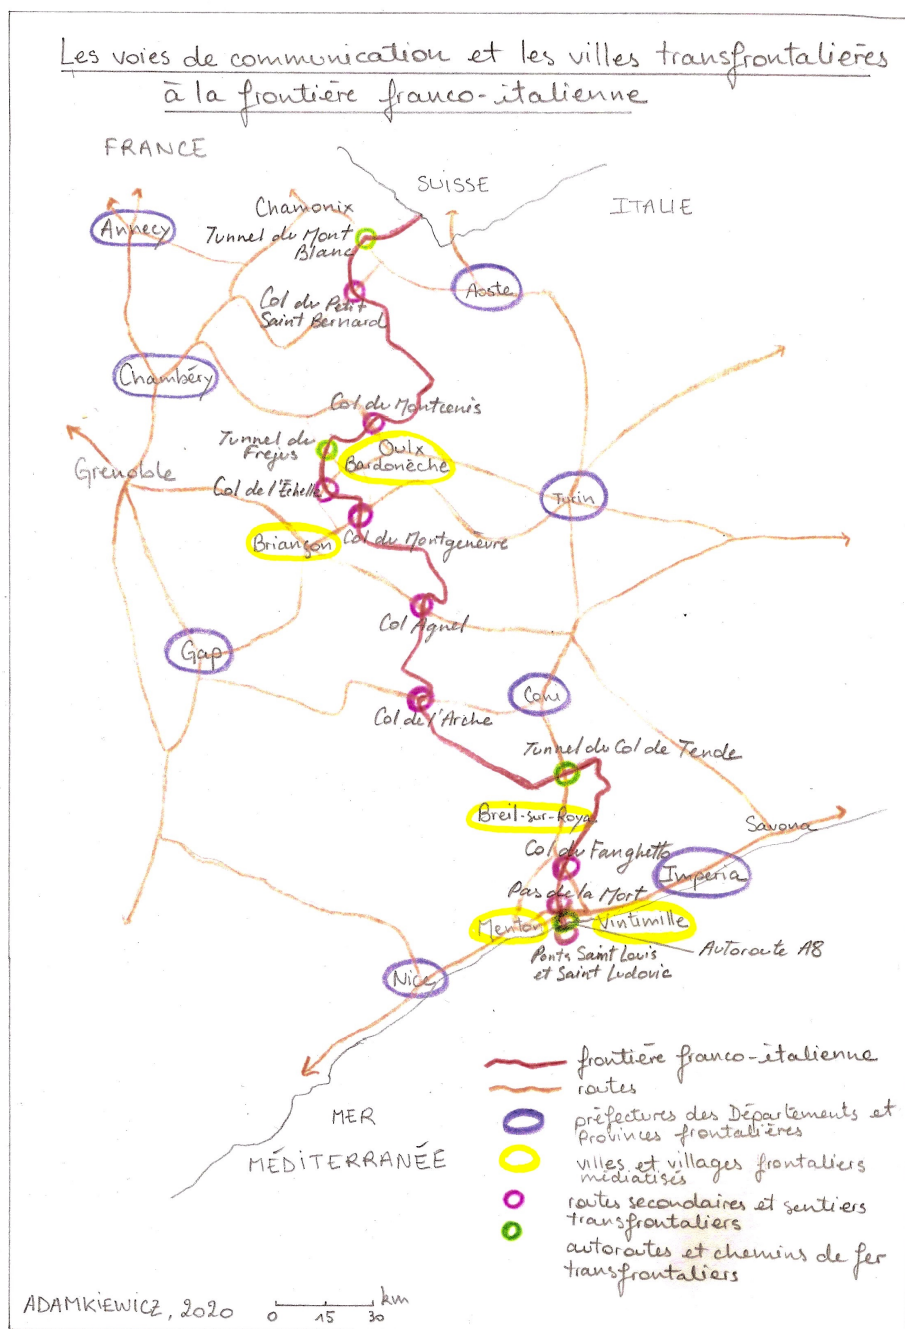 Les voies de communication et les villes transfrontalières
à la frontière franco-italienne
FRANCE
SUISSE
ITALIE
Chamonix
Annecy
Tunnel du Mont
Blanc
Aoste
Col du Petit
Saint Bernard
Chambéry
Col du Montcenis
Tunnel du
Fréjus
Oulx
Bardonèche
Grenoble
Col de l'Échelle
Turin
Briançon
Col du Montgenèvre
Col Agnel
Gap
Coni
Col de l'Arche
Tunnel du Col de Tende
Breil-sur-Roya
Savona
Col du Fanghetto
Imperia
Pas de la Mort
Menton
Vintimille
Autoroute A8
Ponts Saint Louis
et Saint Ludovic
Nice
MER
MÉDITERRANÉE
frontière franco-italienne
routes
préfectures des Départements et
Provinces frontalières
villes et villages frontaliers
médiatisés
routes secondaires et sentiers
transfrontaliers
autoroutes et chemins de fer
transfrontaliers
ADAMKIEWICZ, 2020
km
0 15 30